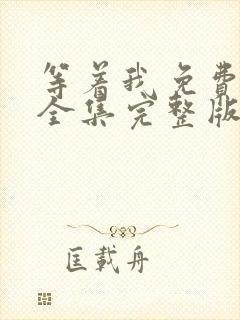 等着我免費
全集完整版
匡載舟